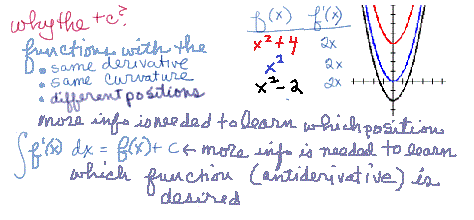 why the + c?
functions with the
• same derivative
• same curvature
• different positions
f(x) f'(x)
x² + 4 2x
x² 2x
x² - 2 2x
more info is needed to learn which position
∫ f'(x) dx = f(x) + c ← more info is needed to learn
which function (antiderivative) is
desired